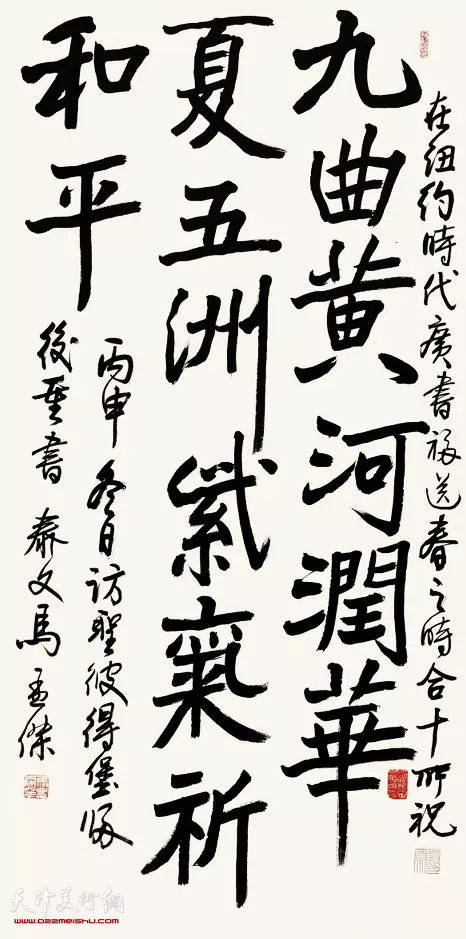 在纽约時代廣書福送春之時合十所祝
九曲黄河潤華
夏五洲紫氣祈
和平
丙申冬日訪聖彼得堡归
後重書 泰文馬孟傑
天津美術網
www.022meishu.com